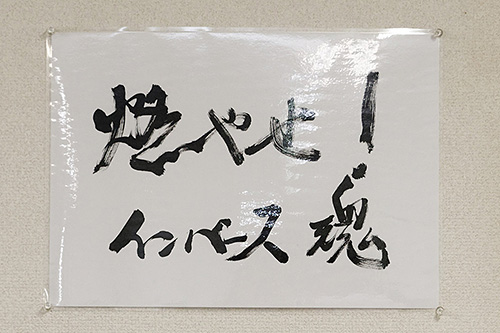 燃やせ!
インバース魂